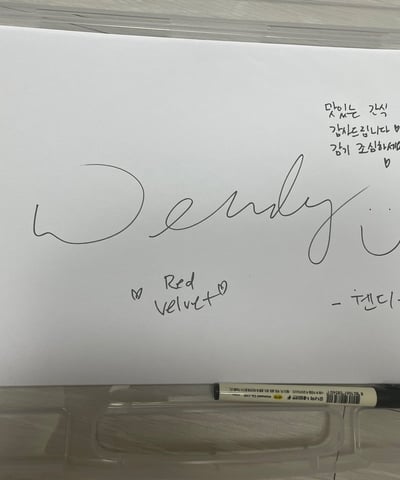 맛있는 간식
감사드립니다
감기 조심하세요
Wendy
Red
Velvet
- 웬디 -